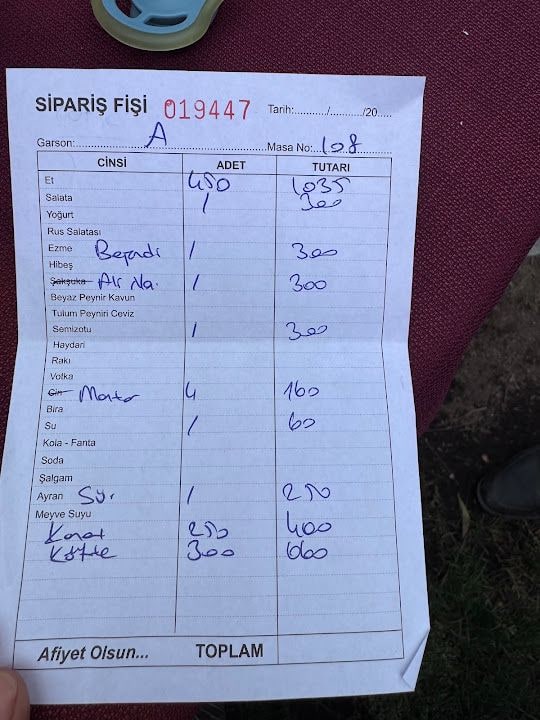 SİPARİŞ FİŞİ 019447 Tarih:........../........../20.....
Garson: A Masa No: 108
CİNSİ ADET TUTARI
Et 450 1035
Salata 1 300
Yoğurt
Rus Salatası
Ezme 1 300
Hibeş
Şakşuka 1 300
Beyaz Peynir Kavun
Tulum Peyniri Ceviz
Semizotu 1 300
Haydari
Rakı
Votka
Cin 4 160
Bira
Su 1 60
Kola - Fanta
Soda
Şalgam
Ayran 1 250
Meyve Suyu
Kanat 250 400
Köfte 300 660
Afiyet Olsun... TOPLAM